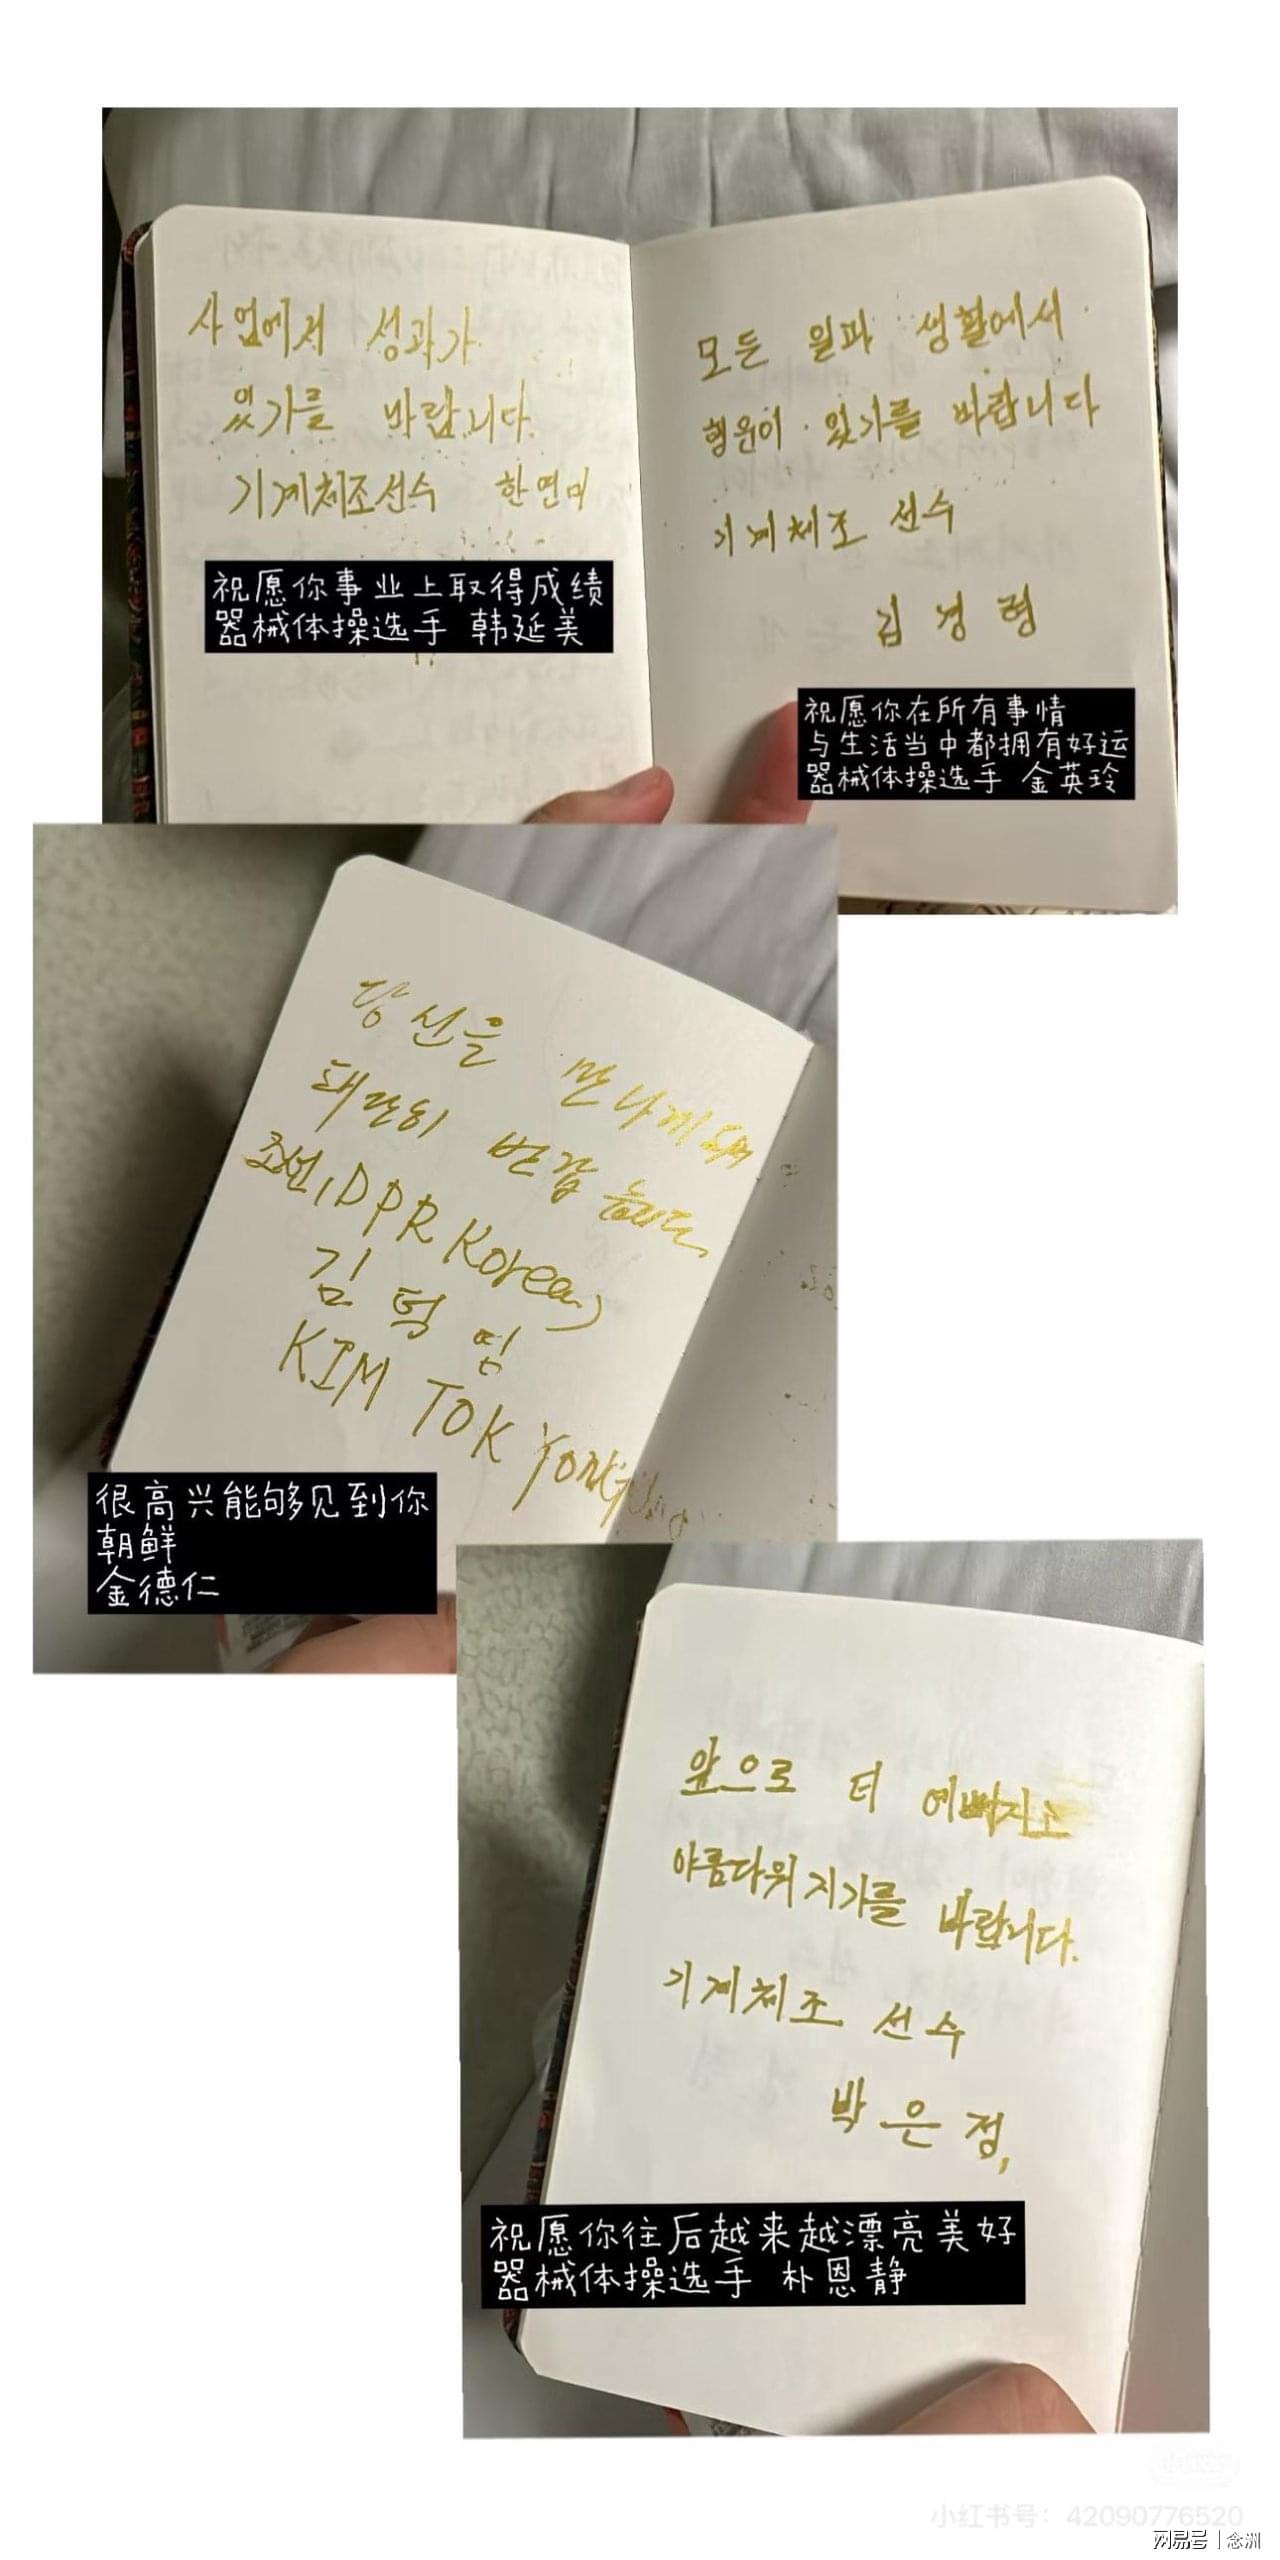 사업에서 성과가
있기를 바랍니다.
기계체조선수 한연미
祝愿你事业上取得成绩
器械体操选手 韩延美
모든 일과 생활에서
행운이 있기를 바랍니다
기계체조 선수
김경령
祝愿你在所有事情
与生活当中都拥有好运
器械体操选手 金英玲
당신을 만나게 돼
대단히 반갑습니다
조선, DPR Korea,
김 덕
KIM TOK
很高兴能够见到你
朝鲜
金德仁
앞으로 더 예뻐지고
아름다워지기를 바랍니다.
기계체조 선수
박은정,
祝愿你往后越来越漂亮美好
器械体操选手 朴恩静
小红书号：42090776520
网易号 | 念洲